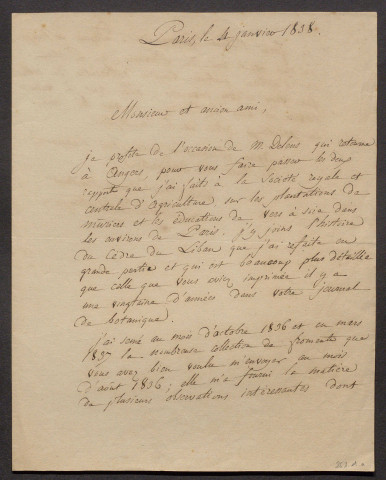 Paris, le 4 janvier 1838.
Monsieur et ancien ami,
je profite de l'occasion de M. qui retourne
à Angers, pour vous faire passer les deux
rapports que j'ai faits à la Société royale et
centrale d'Agriculture sur les plantations de
mûriers et les éducations de vers à soie dans
les environs de Paris. j'y joins l'histoire
du Cèdre du Liban que j'ai refaite en
grande partie et qui est beaucoup plus détaillée
que celle que vous avez imprimée il y a
une vingtaine d'années dans votre journal
de botanique.
j'ai semé au mois d'octobre 1836 et en mars
1837 la nombreuse collection de froments que
vous avez bien voulu m'envoyer au mois
d'août 1836; elle m'a fourni la matière
de plusieurs observations intéressantes dont